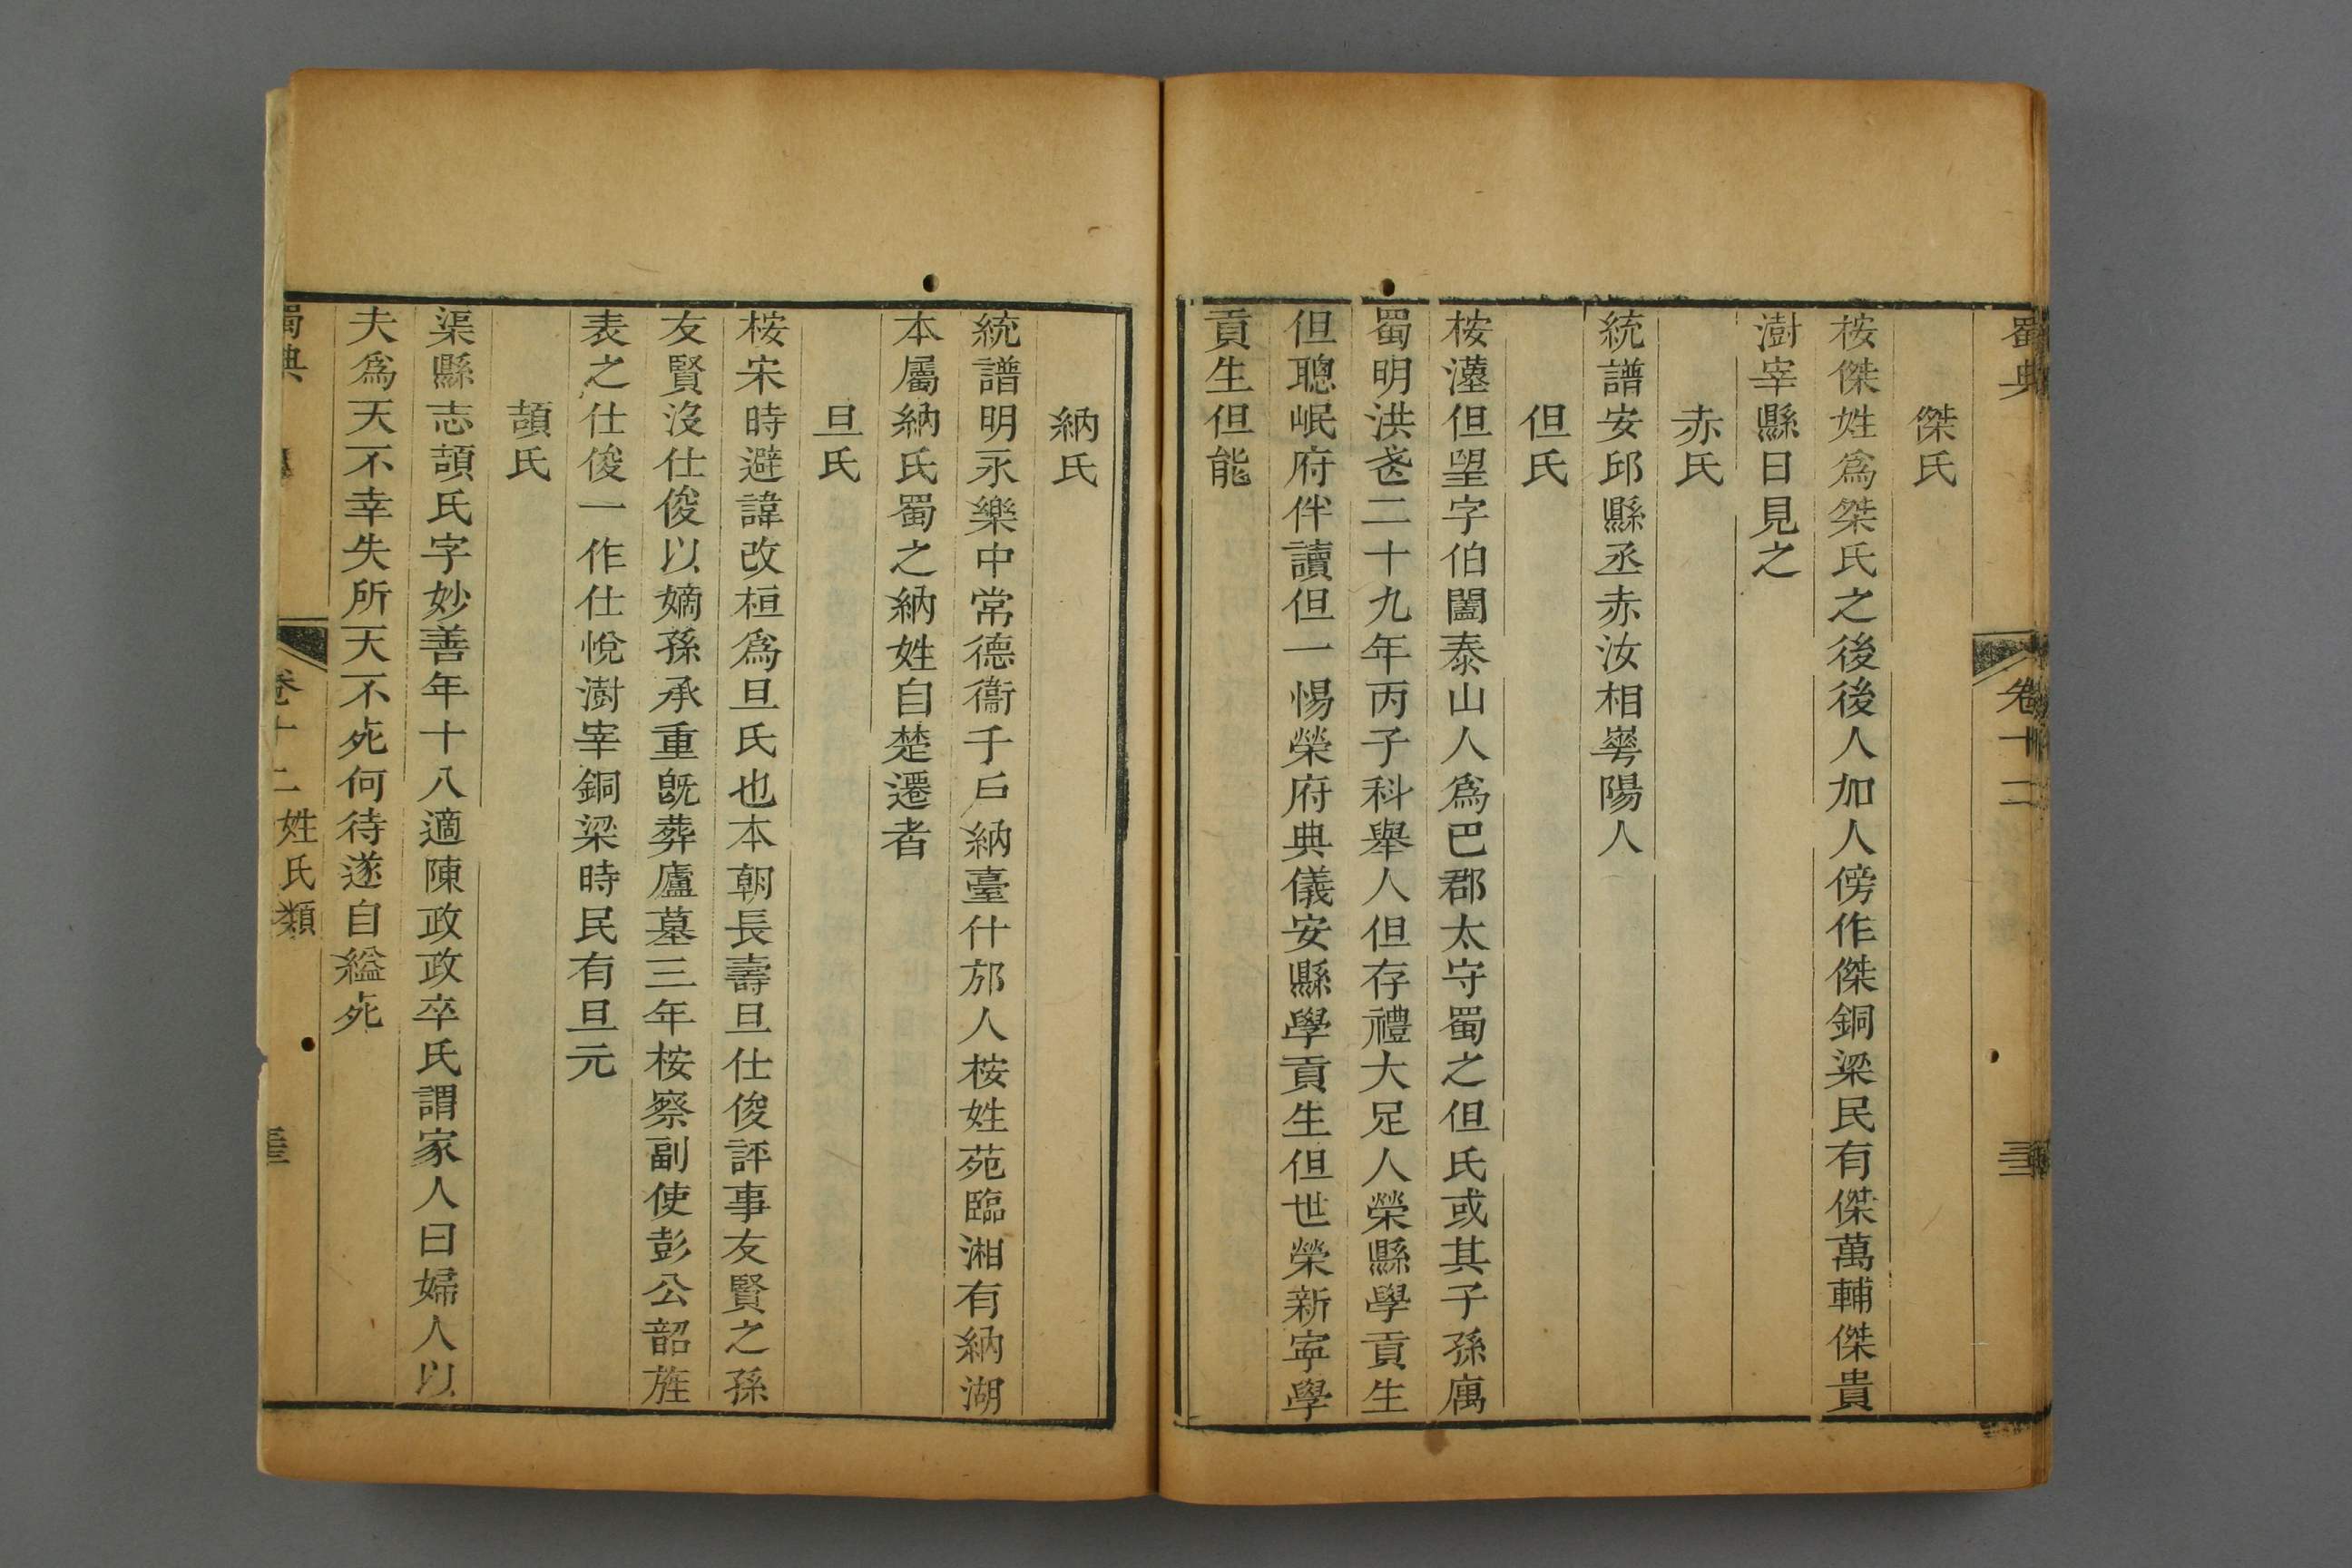 蜀典
卷十二
傑氏
桉傑姓爲桀氏之後後人加人傍作傑銅梁民有傑萬輔傑貴
澍宰縣日見之
赤氏
統譜安邱縣丞赤汝相崿陽人
但氏
桉漢但望字伯闔泰山人爲巴郡太守蜀之但氏或其子孫寓
蜀明洪武二十九年丙子科舉人但存禮大足人榮縣學貢生
但聰岷府伴讀但一惕榮府典儀安縣學貢生但世榮新寧學
貢生但能
納氏
統譜明永樂中常德衞千戶納臺什邡人桉姓苑臨湘有納湖
本屬納氏蜀之納姓自楚遷者
旦氏
桉宋時避諱改桓爲旦氏也本朝長壽旦仕俊評事友賢之孫
友賢沒仕俊以嫡孫承重旣葬廬墓三年桉察副使彭公韶旌
表之仕俊一作仕悅澍宰銅梁時民有旦元
頡氏
渠縣志頡氏字妙善年十八適陳政政卒氏謂家人曰婦人以
夫爲天不幸失所天不死何待遂自縊死
蜀典
卷十二 姓氏類